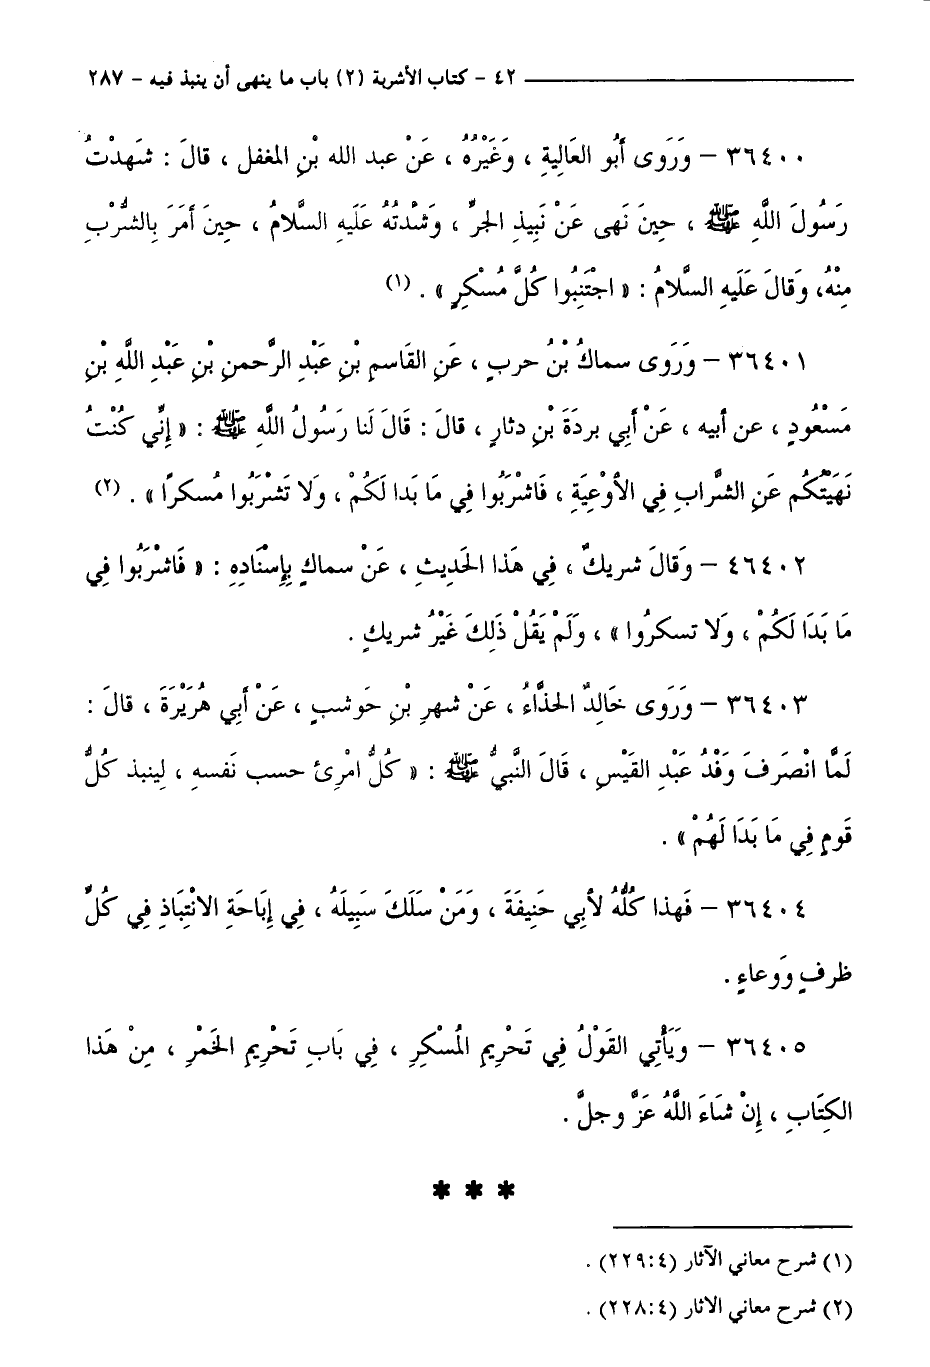 ٤٢ - كتاب الأشربة (٢) باب ما ينهى أن ينبذ فيه - ٢٨٧
٣٦٤٠٠ - وَرَوَى أَبُو العَالِيةِ ، وَغَيْرُهُ ، عَنْ عبد الله بْنِ المغفل ، قالَ : شَهِدْتُ
رَسُولَ اللَّهِ ﷺ ، حِينَ نَهى عَنْ نَبِيذِ الجرِّ ، وَشَدْتُهُ عَلَيهِ السَّلامُ ، حِينَ أَمَرَ بِالشُّرْبِ
مِنْهُ، وَقالَ عَلَيهِ السَّلامُ : « اجْتَنِبُوا كُلَّ مُسْكِرٍ » . (١)
٣٦٤٠١ - وَرَوَى سماكُ بْنُ حربٍ ، عَنِ القَاسِمِ بْنِ عَبْدِ الرَّحمنِ بْنِ عَبْدِ اللَّهِ بْنِ
مَسْعُودٍ ، عن أبيه ، عَنْ أَبِي بردَةَ بْنِ دثارٍ ، قالَ : قَالَ لَنا رَسُولُ اللَّهِ ﷺ : « إِنِّي كُنْتُ
نَهَيْتُكُم عَنِ الشَّرابِ فِي الأوْعِيَةِ ، فَاشْرَبُوا فِي مَا بَدا لَكُمْ ، وَلا تَشْرَبُوا مُسكرًا » . (٢)
٤٦٤٠٢ - وَقالَ شريكٌ ، فِي هَذا الحَديثِ ، عَنْ سماكٍ بِإِسْنَادِهِ : « فَاشْرَبُوا فِي
مَا بَدَا لَكُمْ ، وَلا تسكرُوا » ، وَلَمْ يَقُلْ ذَلِكَ غَيْرُ شريكٍ .
٣٦٤٠٣ - وَرَوَى خَالِدٌ الحذَّاءُ ، عَنْ شهرِ بْنِ حَوشبٍ ، عَنْ أَبِي هُرَيْرَةَ ، قالَ :
لَمَّا انْصَرَفَ وَفْدُ عَبْدِ القَيْسِ ، قَالَ النَّبيُّ ﷺ : « كُلُّ امْرِئ حسب نَفسهِ ، لِينبذ كُلُّ
قَومٍ فِي مَا بَدَا لَهُمْ » .
٣٦٤٠٤ - فَهذا كُلُّهُ لأبِي حَنِيفَةَ ، وَمَنْ سَلَكَ سَبِيلَهُ ، فِي إِبَاحَةِ الانْتِبَاذِ فِي كُلِّ
ظرفٍ وَوعاءٍ .
٣٦٤٠٥ - وَيَأْتِي القَوْلُ فِي تَحْرِيمِ المُسْكِرِ ، فِي بَابِ تَحْرِيمِ الخَمْرِ ، مِنْ هَذا
الكِتَابِ ، إِنْ شَاءَ اللَّهُ عَزَّ وجلَّ .
* * *
(١) شرح معاني الآثار (٤:٢٢٩) .
(٢) شرح معاني الاثار (٤:٢٢٨) .